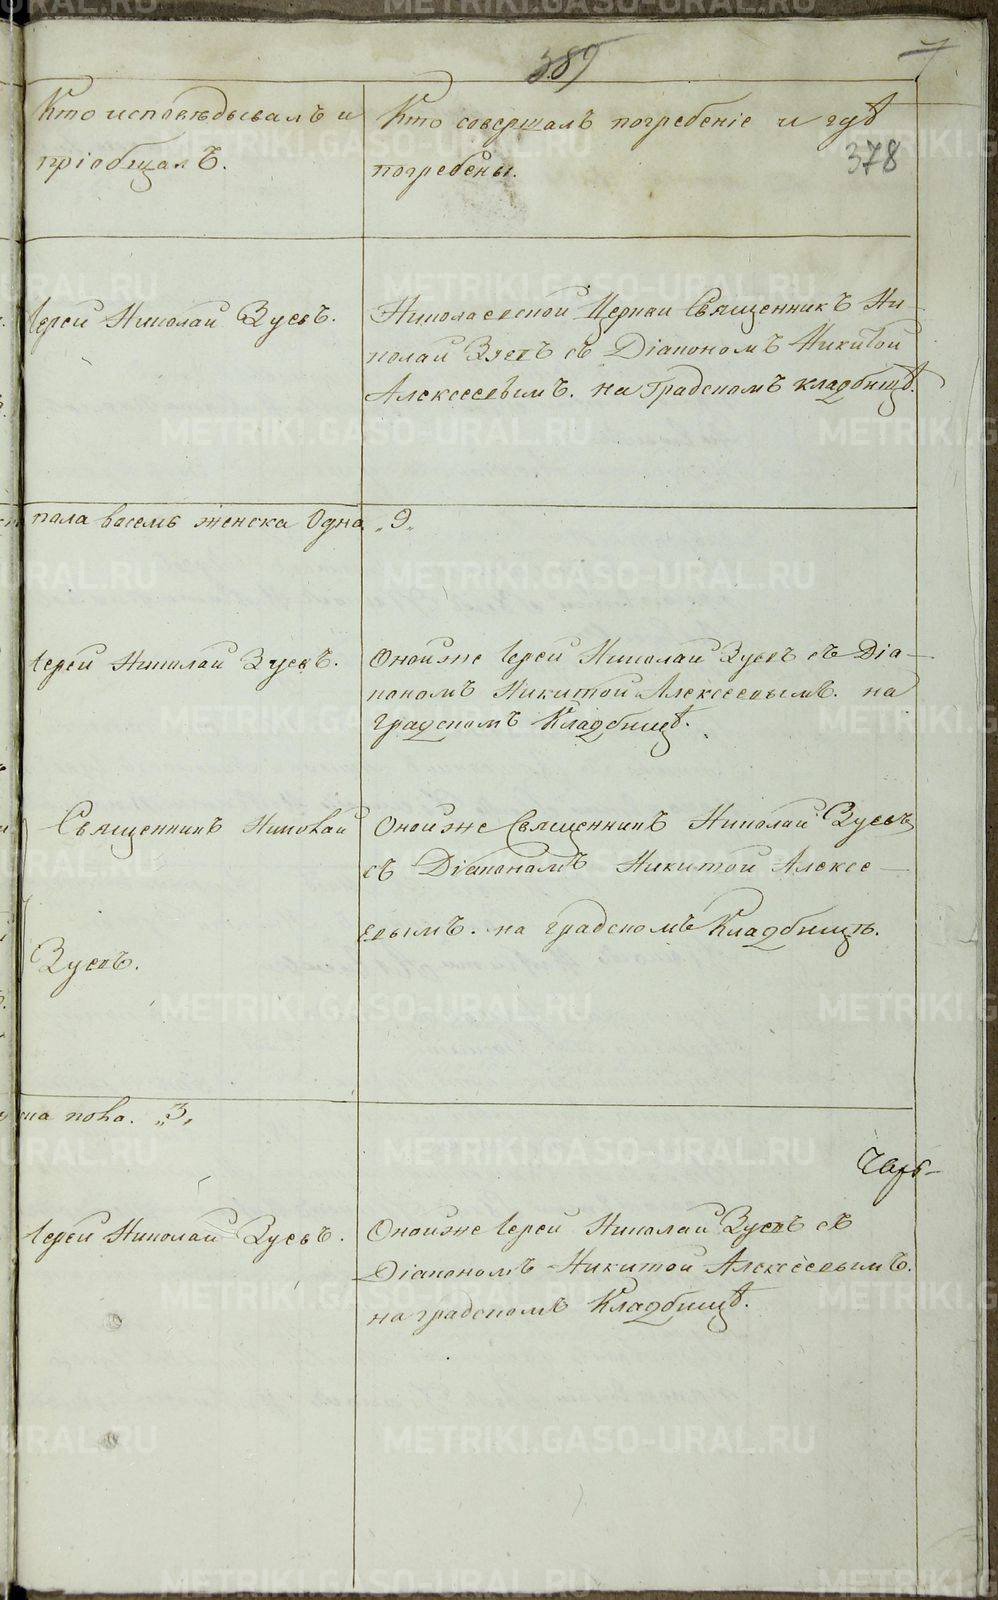 389
7
Кто исповѣдывалъ и
пріобщалъ.
Кто совершалъ погребеніе и гдѣ
погребены.
378
Іерей Николай Зуевъ.
Николаевской Церкви Священникъ Ни-
колай Зуевъ съ Діакономъ Никитой
Алексеевымъ. на Градскомъ кладбищѣ.
пола восемь женска Одна „9„
Іерей Николай Зуевъ.
Онойже Іерей Николай Зуевъ съ Діа-
кономъ Никитой Алексеевымъ. на
Градскомъ Кладбищѣ.
Священникъ Николай
Зуевъ.
Онойже Священникъ Николай Зуевъ
съ Діакономъ Никитой Алексе-
евымъ. на градскомъ Кладбищѣ.
пола. „3„
Іерей Николай Зуевъ.
Онойже Іерей Николай Зуевъ съ
Діакономъ Никитой Алексеевымъ.
на градскомъ Кладбищѣ.
METRIKI.GASO-URAL.RU